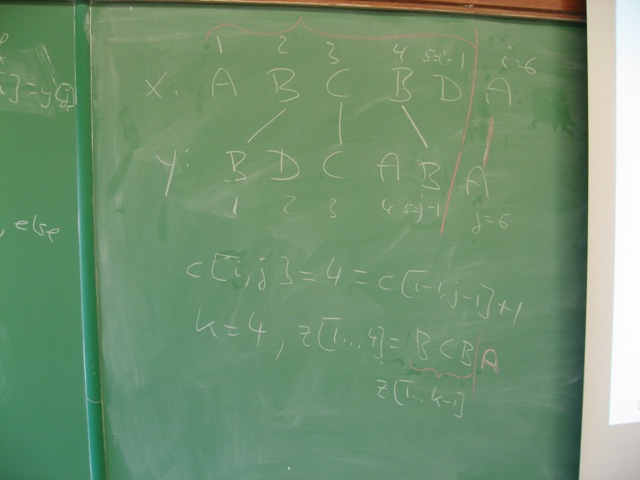 1 2 3 4 5=i-1 i=6
x: A B C B D A
y: B D C A B A
1 2 3 4 5=j-1 j=6
c[i,j] = 4 = c[i-1,j-1]+1
k=4, z[1...4]= B C B | A
z[1...k-1]
]=y[j]
, else